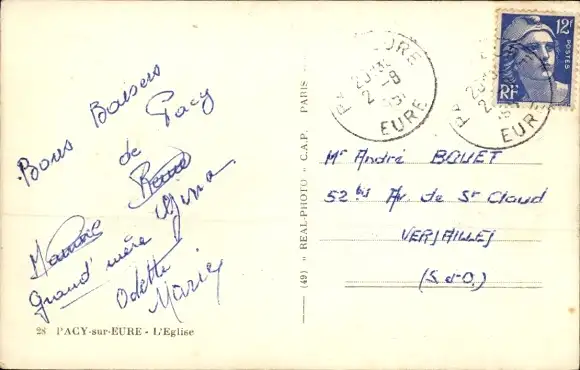 Bons Baisers
de Pacy
René
Gina
Maurice
Grand'mère
Odette
Marie
28 PACY-sur-EURE - L'Eglise
(49) « REAL-PHOTO » C.A.P. PARIS
EURE
EURE
12F
POSTES
RF
Mr André BOUET
52 bis Av. de St Cloud
VERSAILLES
(S.-et-O.)